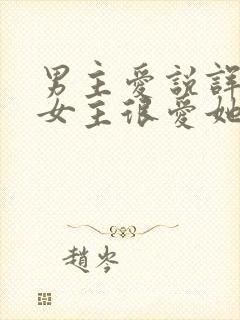 男主愛說謊
女主很愛她
趙岑